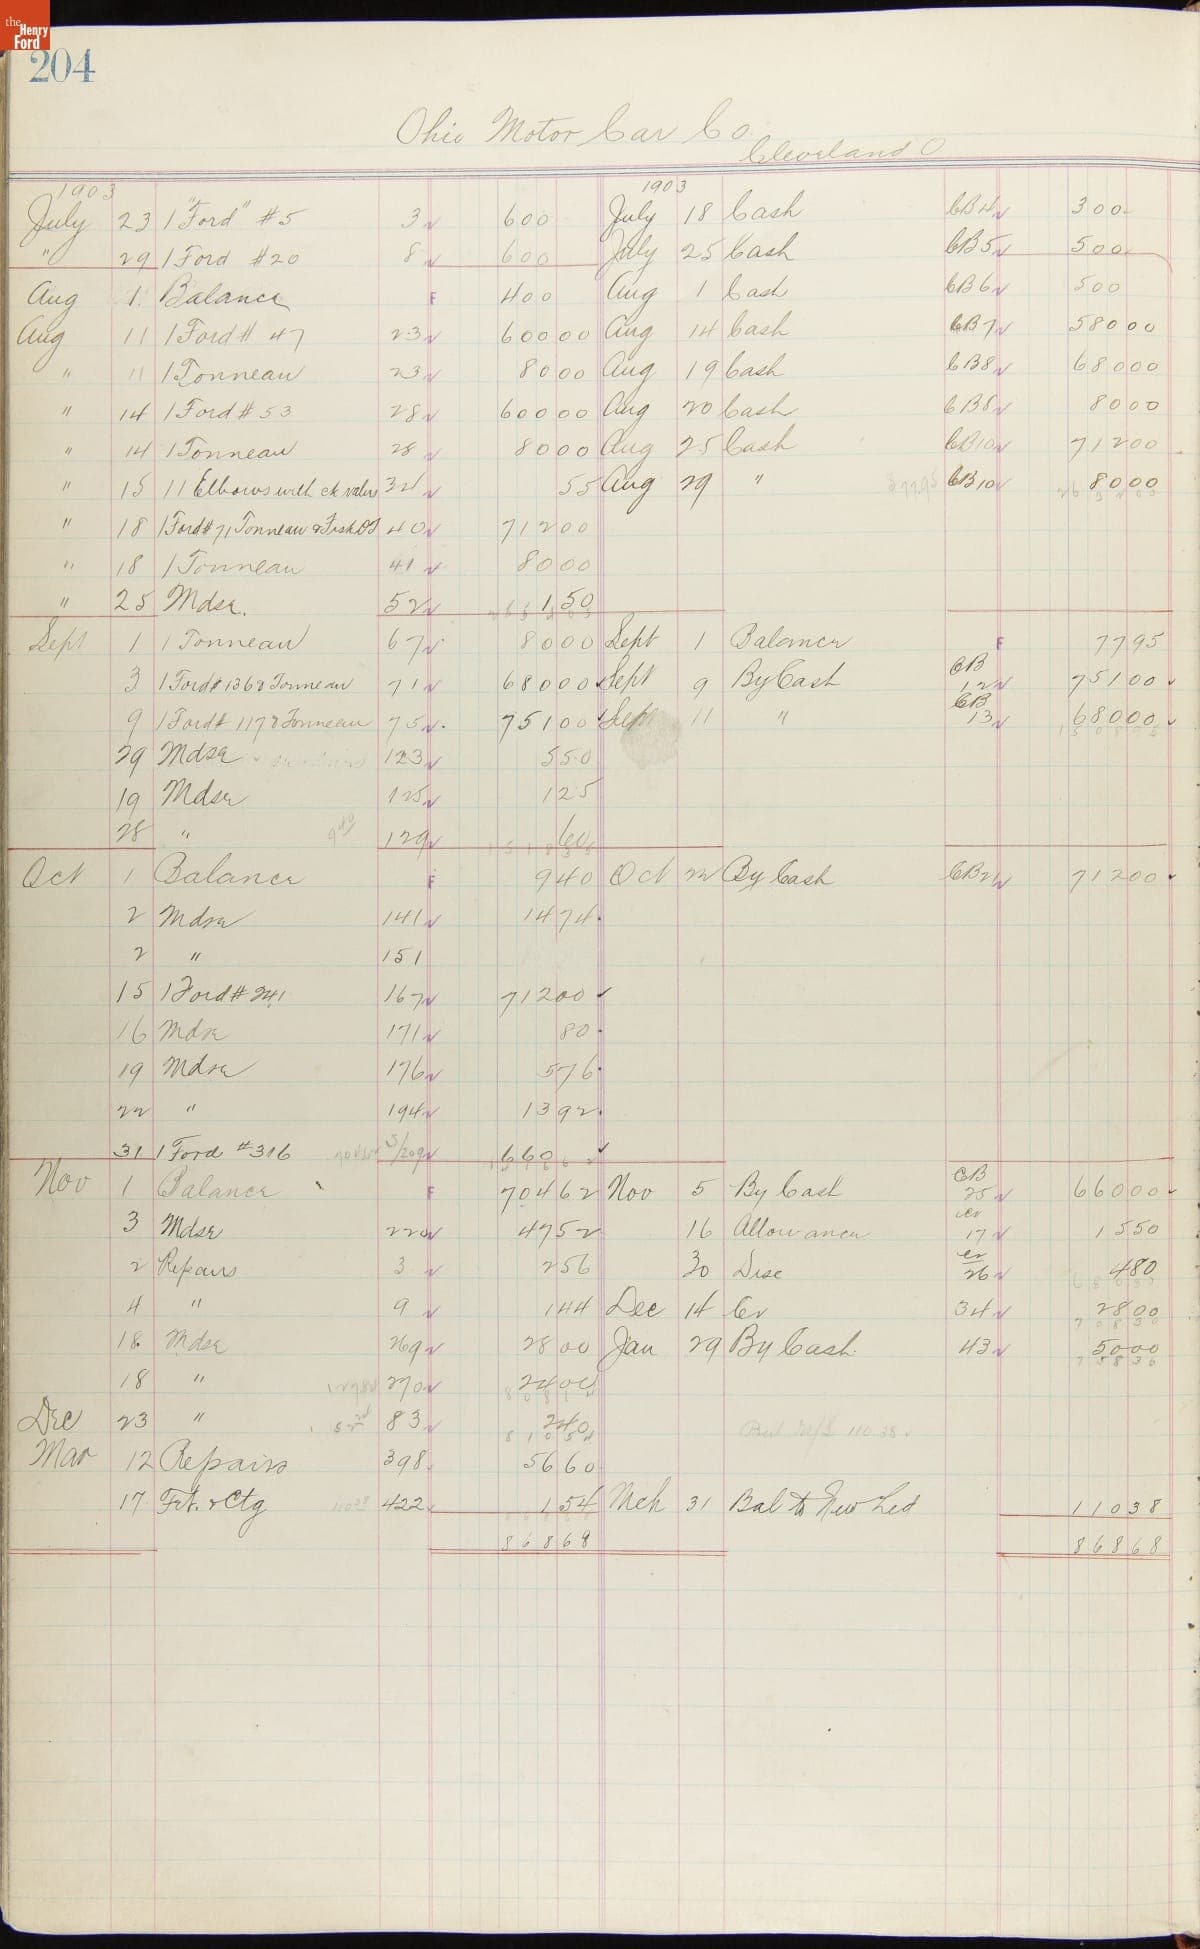 the Henry Ford
204
Ohio Motor Car Co.
Cleveland O
1903 1903
July 23 1 "Ford" #5 3 600 July 18 Cash CB4 300
" 29 1 Ford #20 8 600 July 25 Cash CB5 500
Aug 1 Balance F 400 Aug 1 Cash CB6 500
Aug 11 1 Ford # 47 23 60000 Aug 14 Cash CB7 58000
" 11 1 Tonneau 23 8000 Aug 19 Cash CB8 68000
" 14 1 Ford # 53 28 60000 Aug 20 Cash CB8 8000
" 14 1 Tonneau 28 8000 Aug 25 Cash CB10 71200
" 15 11 Elbows with ck valves 32 55 Aug 29 " 8 77.95 CB10 8000
" 18 1 Ford # 71 Tonneau & Fisk DT 40 71200
" 18 1 Tonneau 41 8000
" 25 Mdse. 52 150
Sept 1 1 Tonneau 67 8000 Sept 1 Balance F 7795
3 1 Ford # 136 & Tonneau 71 68000 Sept 9 By Cash CB 12 75100
9 1 Ford # 117 & Tonneau 75 75100 Sept 11 " CB 13 68000
150895
29 Mdse 123 550
19 Mdse 125 125
28 " 9 40 129 60
Oct 1 Balance F 940 Oct 22 By Cash CB21 71200
2 Mdse 141 1474
2 " 151
15 1 Ford # 241 167 71200
16 Mdse 171 80
19 Mdse 176 576
22 " 194 1392
31 1 Ford # 316 S/209 660
Nov 1 Balance F 70462 Nov 5 By Cash CB 25 66000
3 Mdse 220 4752 16 Allowance cr 17 1550
2 Repairs 3 256 30 Disc cr 26 480
4 " 9 144 Dec 14 Cr 34 2800
70830
18 Mdse 269 2800 Jan 29 By Cash 43 5000
75830
18 " 270 2400
Dec 23 " 83 240
81054
Bal 110.38
Mar 12 Repairs 398 5660
17 Frt. & Ctg 110 38 422 154 Mch 31 Bal to New Led 11038
86868 86868